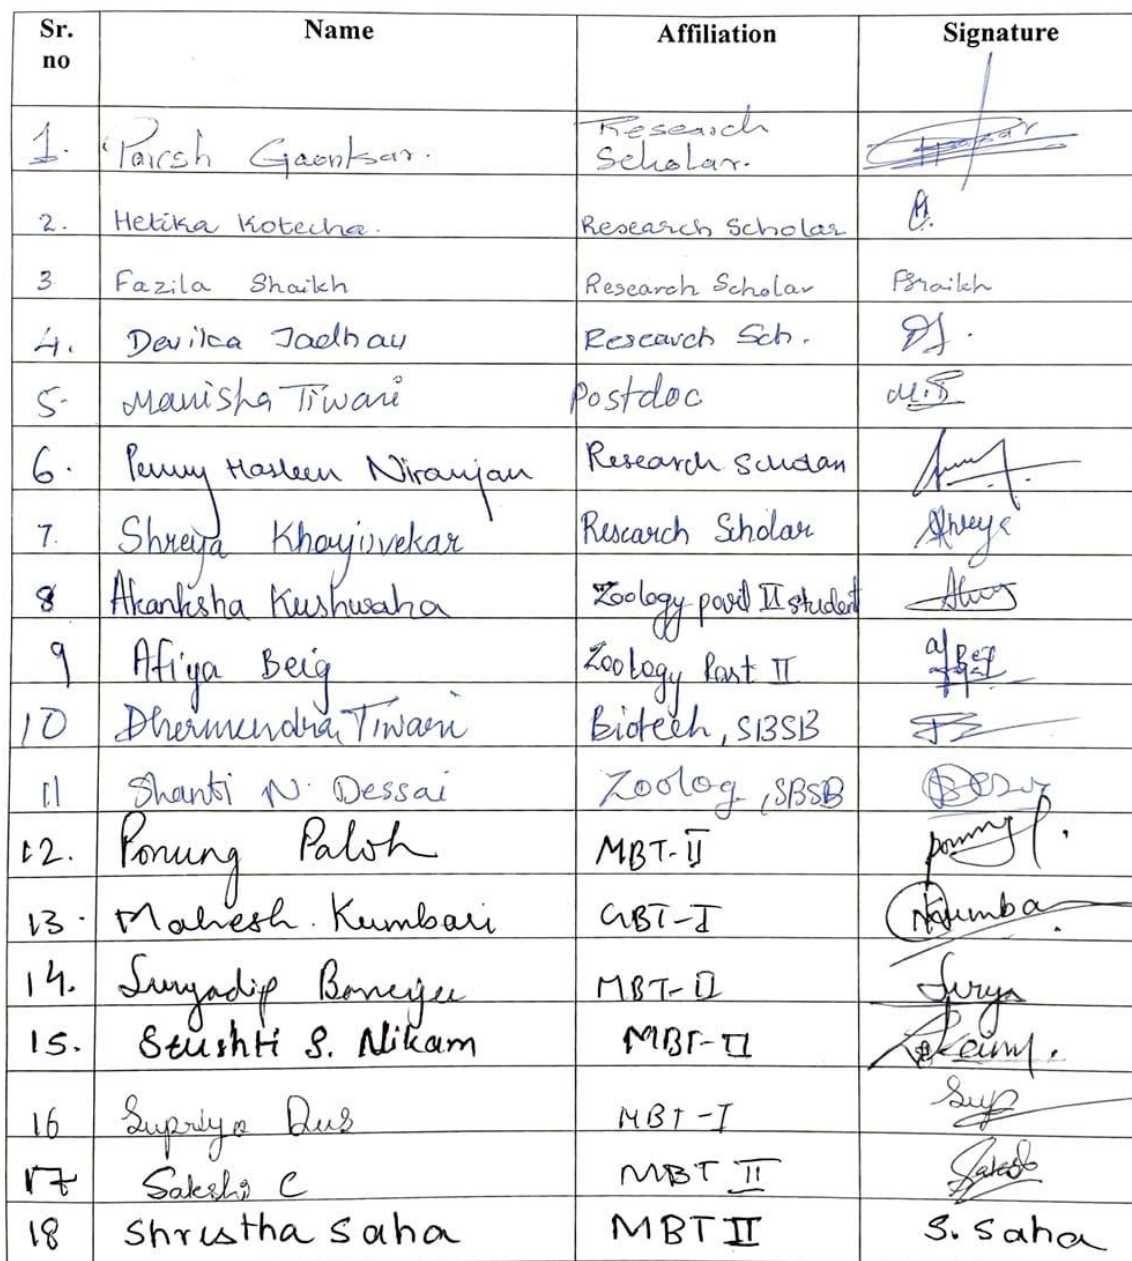 Sr. no Name Affiliation Signature
1. Paresh Gaonkar. Research Scholar.
2. Hetika Kotecha. Research Scholar
3 Fazila Shaikh Research Scholar FShaikh
4. Devika Jadhav Research Sch. DJ.
5. Manisha Tiwari Postdoc M.T
6. Penny Hasleen Niranjan Research Scholar
7. Shreya Khajuvekar Research Scholar Shreya
8 Akanksha Kushwaha Zoology part II student
9 Afiya Beig Zoology Part II
10 Dharmendra Tiwari Biotech, SBSB
11 Shanti N. Dessai Zoolog, SBSB
12. Ponung Paloh MBT-II
13. Mahesh. Kumbar GBT-I
14. Suryadip Banerjee MBT-II Surya
15. Srushti S. Nikam MBT-II
16 Supriyo Das MBT-I Sup
17 Sakshi C MBT II Sakshi
18 Shristha Saha MBT II S. Saha